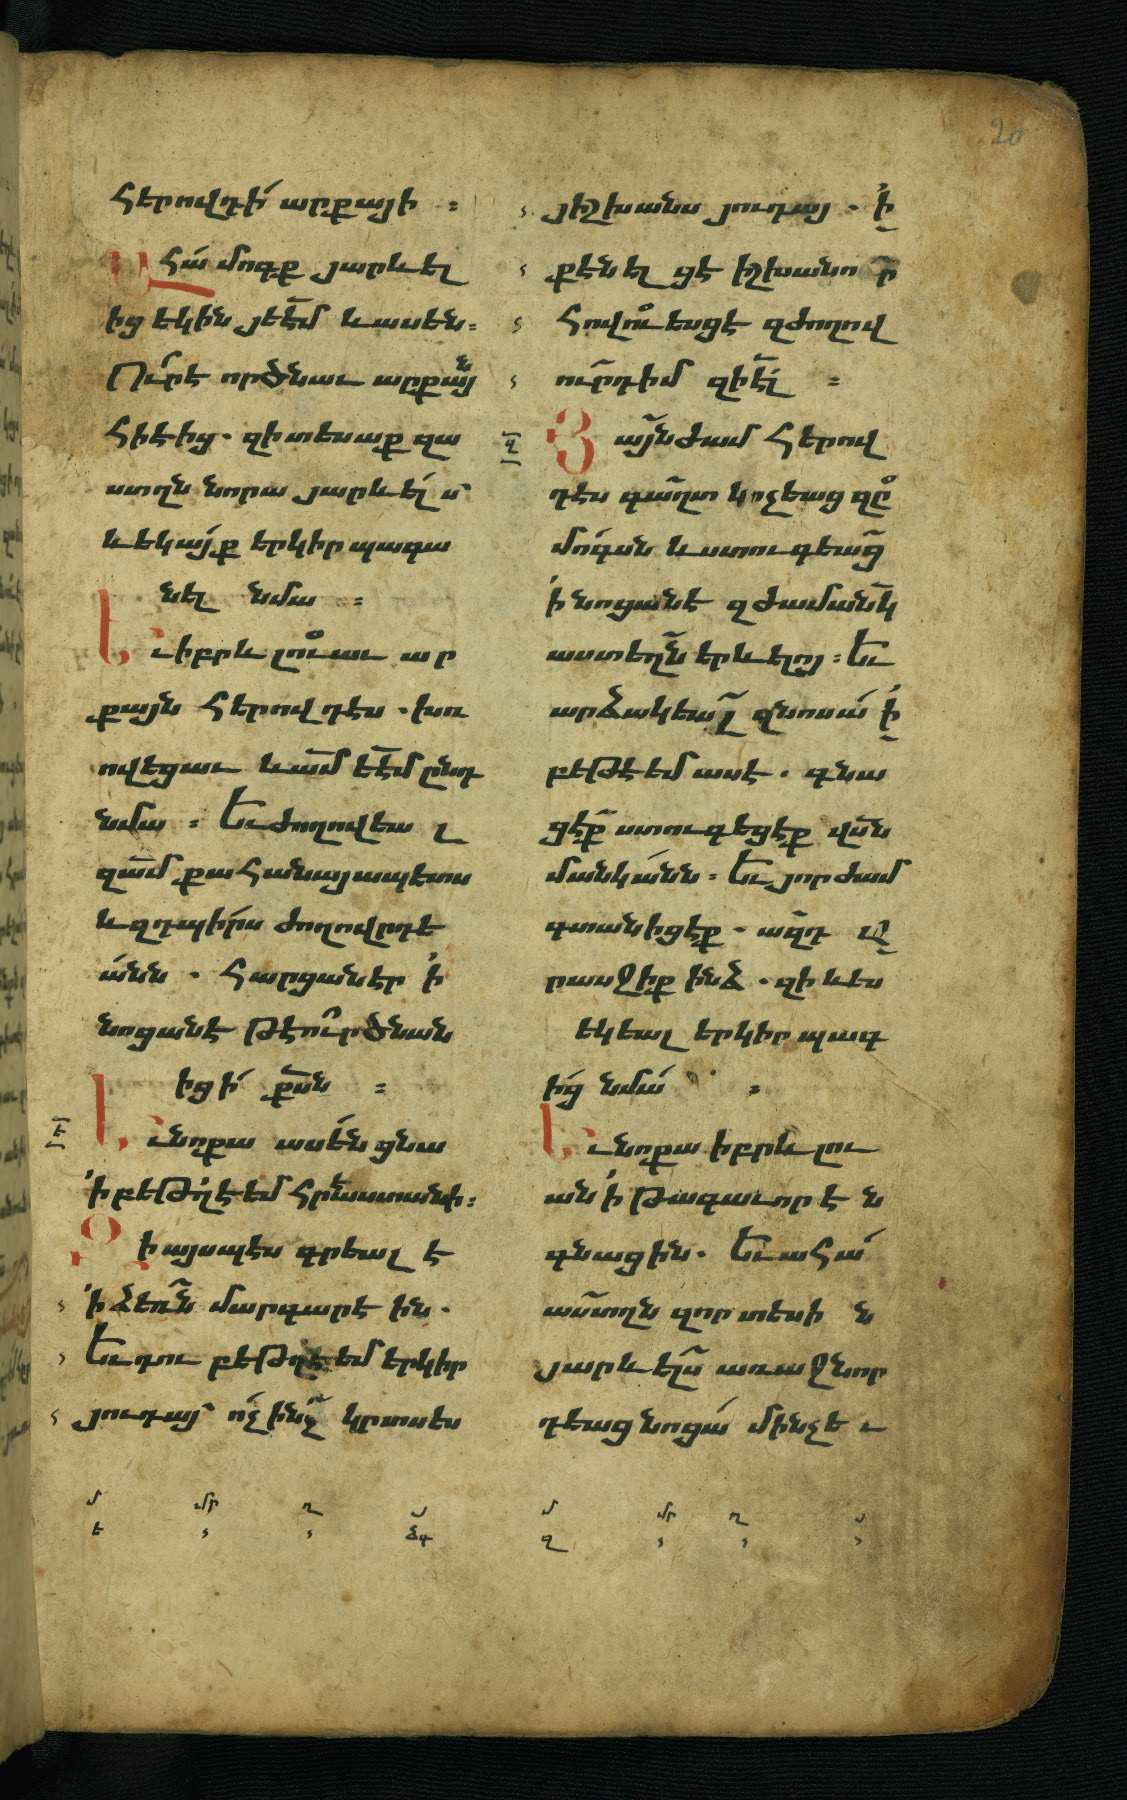 20
Հերովդի արքայի ։
Ահա մոգք յարևել
ից եկին յե՟էմ և ասեն։
Ո՞ւր է որ ծնաւ արքա՟յն
Հրէից. զի տեսաք զա
ստղն նորա յարևելս
և եկաք երկիր պագա
նել նմա ։
Եւ իբրև լուաւ ար
քայն Հերովդէս. խռ
ովեցաւ և ա՟մ ե՟էմ ընդ
նմա ։ Եւ ժողովեալ
զա՟մ քահանայապետս
և զդպիրս ժողովրդե
անն . Հարցանէր ՚ի
նոցանէ թէ ո՞ւր ծնան
իցի ք՟սն ։
Ե
Եւ նոքա ասեն ցնա
՚ի բեթղեէմ հր՟աստանի։
Զի այսպէս գրեալ է
՚ի ձեռ՟ն մարգարէին.
Եւ դու բեթղեէմ երկիր
յուդայ՝ ո՛չ ինչ կրտսես
յիշխանս յուդայ . ՚ի
քէն ելցէ իշխանո՟ր
Հովուեսցէ զժողով
ու՟րդ իմ զի՟էլ ։
Զ
Յայ՟նժամ Հերով
դէս գա՟ղտ կոչեաց զը
մոգսն և ստուգեա՟ց
՚ի նոցանէ զժաման՟կ
աստեղ՟ն երևելոյ ։ Եւ
արձակեա՟լ զնոսա ՚ի
բեթէեմ ասէ . գնա
ցէ՟ք ստուգեցէք վ՟սն
մանկանն ։ Եւ յորժամ
գտանիցէք . ա՟զդ ա
րասջիք ինձ . զի և ես
եկեալ երկիր պագ
ից նմա ։
Եւ նոքա իբրև լու
ան ՚ի թագաւորէն
գնացին . Եւ ահա
աս՟տղն զոր տեսին
յարևել՟ս առաջնոր
դեաց նոցա մինչև
մ մր ղ յ մ մր ղ յ
ե ձգ զ